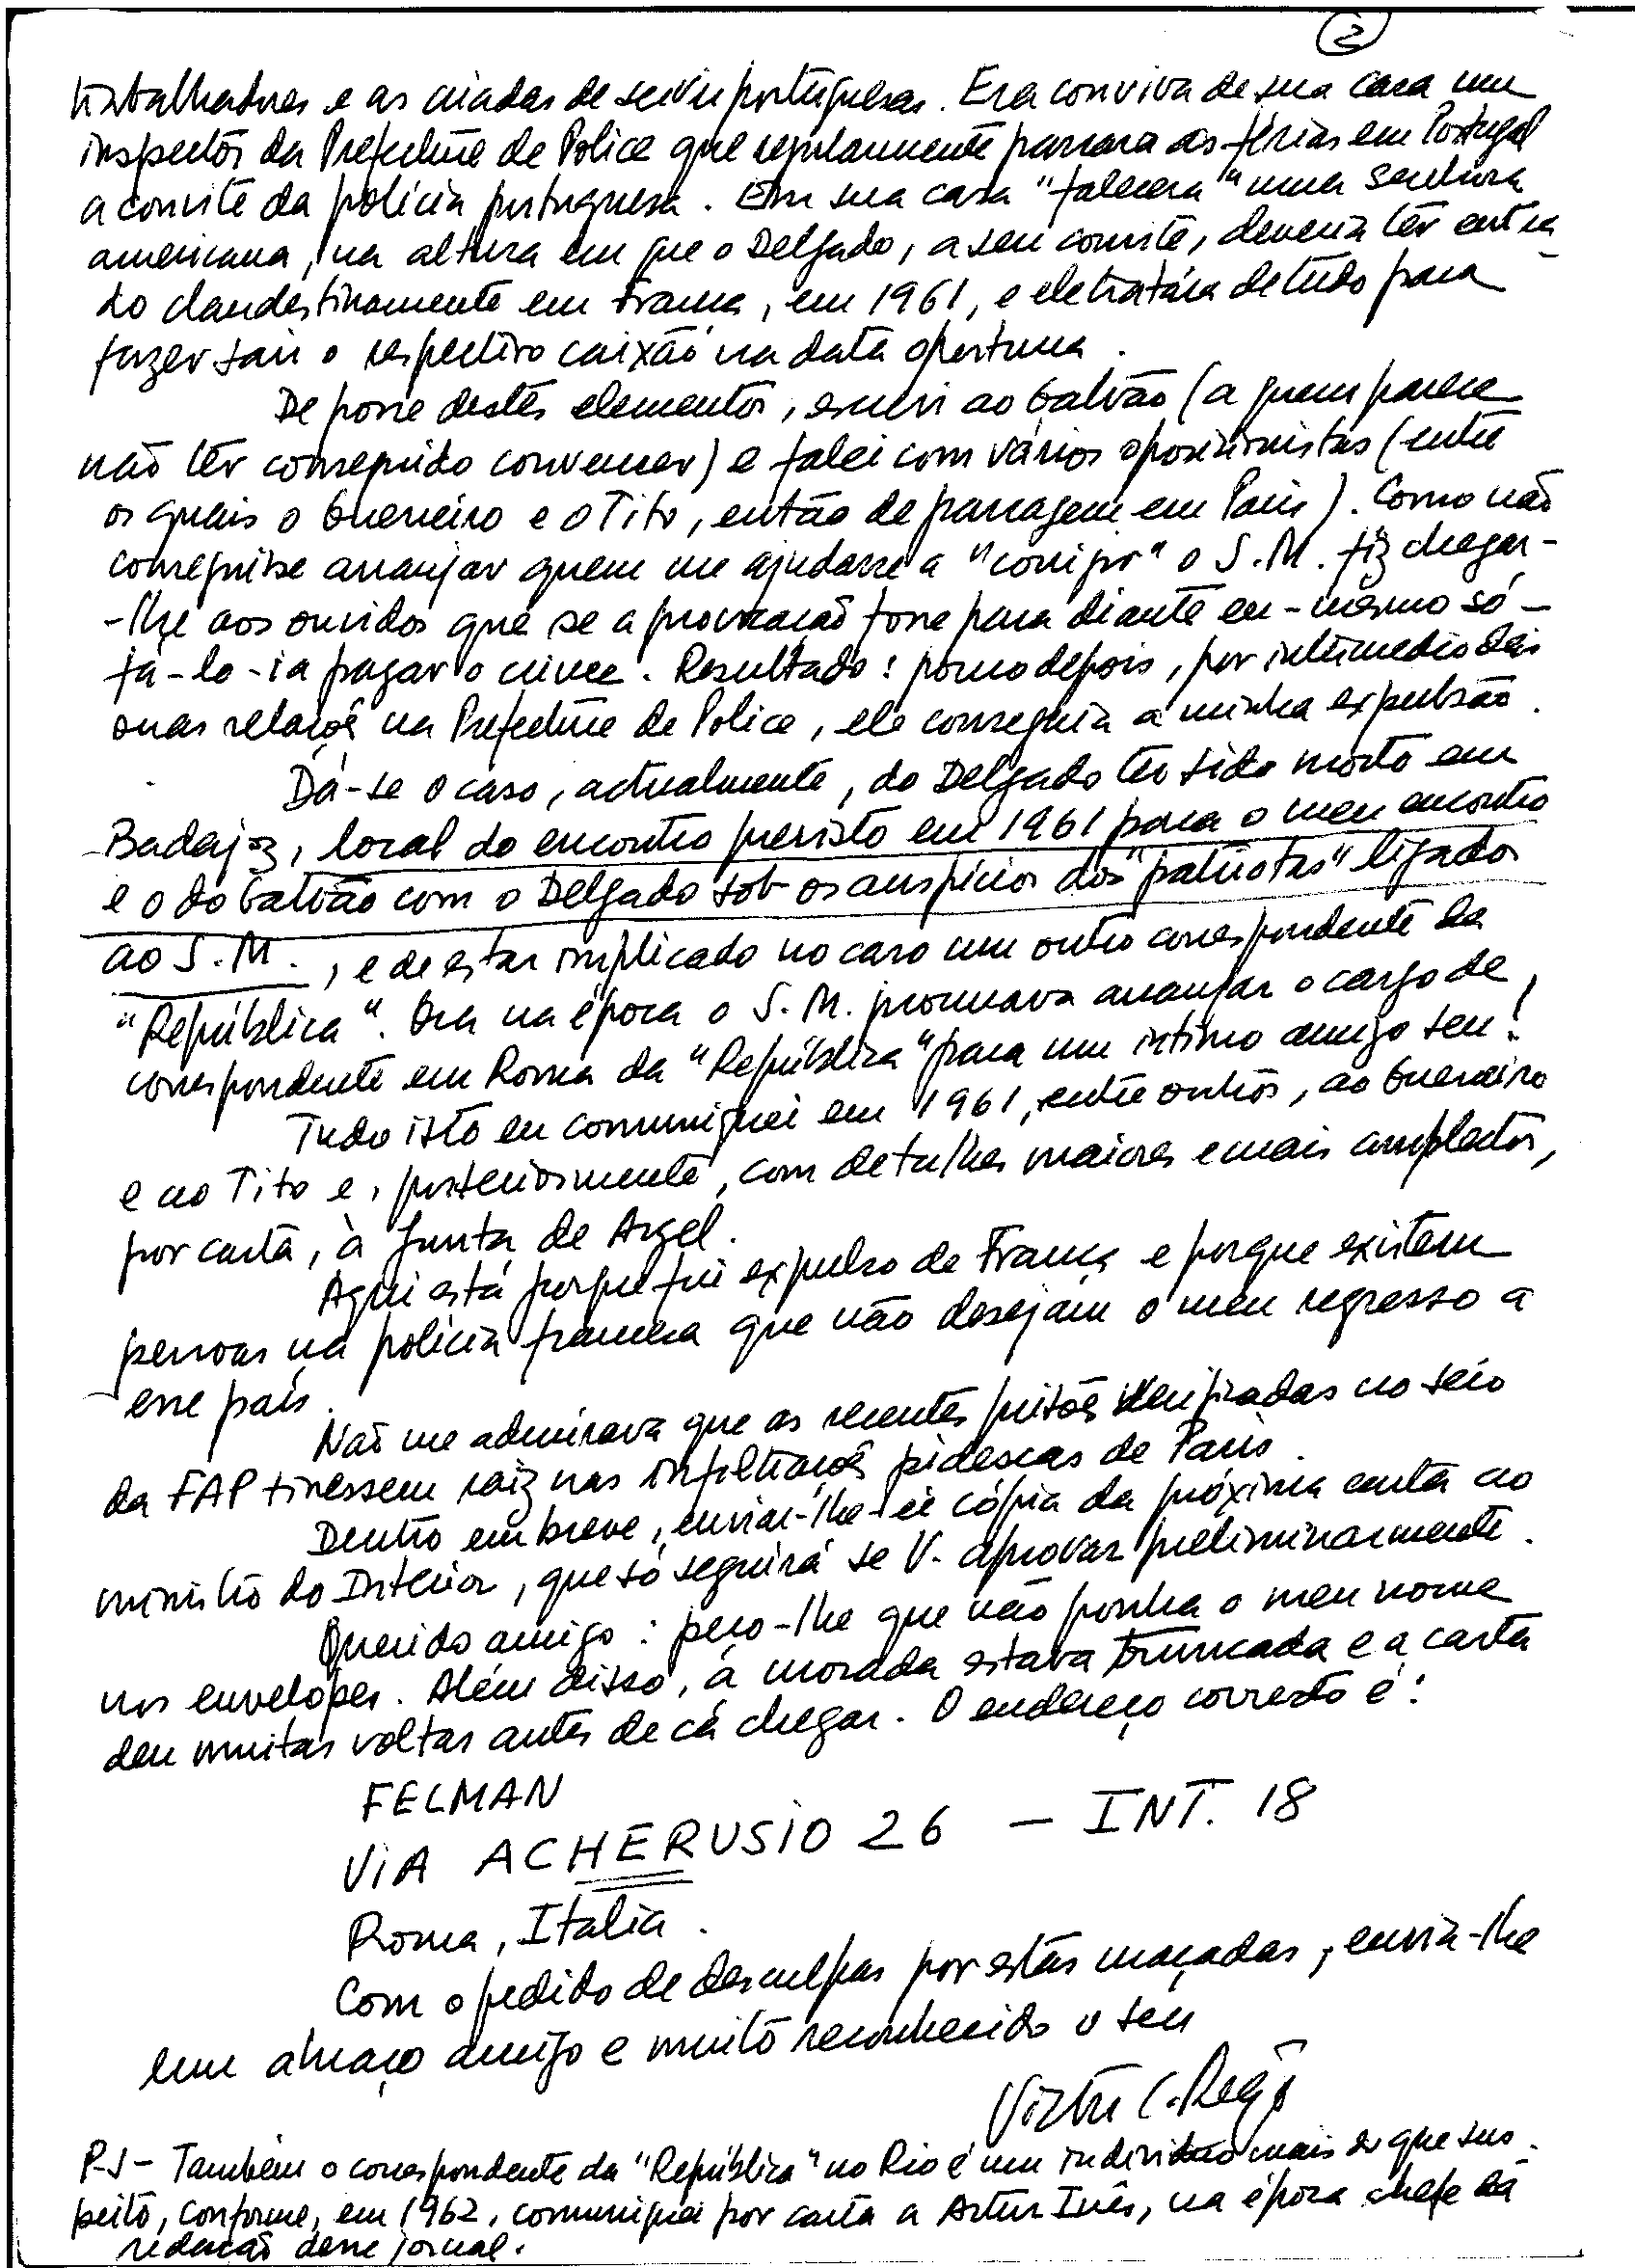 2
trabalhadores e as criadas de servir portuguesas. Era conviva de sua casa um
inspector da Prefecture de Police que regularmente passara as férias em Portugal
a convite da polícia portuguesa. Em sua casa "falecera" uma senhora
americana, na altura em que o Delgado, a seu convite, deveria ter entra-
do clandestinamente em França, em 1961, e ele tratára de tudo para
fazer sair o respectivo caixão na data oportuna.
De posse destes elementos, escrevi ao Galvão (a quem parece
não ter conseguido convencer) e falei com vários oposicionistas (entre
os quais o Guerreiro e o Tito, então de passagem em Paris). Como não
conseguisse arranjar quem me ajudasse a "corrigir" o S.M. fiz chegar-
-lhe aos ouvidos que se a provocação fosse para diante eu-mesmo só-
fá-lo-ia pagar o crime. Resultado: pouco depois, por intermedio das
suas relações na Prefecture de Police, ele conseguia a minha expulsão.
Dá-se o caso, actualmente, do Delgado ter sido morto em
Badajoz, local do encontro previsto em 1961 para o meu encontro
e o do Galvão com o Delgado sob os auspícios dos "patriotas" ligados
ao S.M., e de estar implicado no caso um outro correspondente da
"República". Ora na época o S.M. procurava arranjar o cargo de
correspondente em Roma da "República" para um intimo amigo seu!
Tudo isto eu comuniquei em 1961, entre outros, ao Guerreiro
e ao Tito e, posteriormente, com detalhes maiores e mais completos,
por carta, à Junta de Argel.
Aqui está porque fui expulso de França e porque existem
pessoas na polícia francesa que não desejam o meu regresso a
esse país.
Não me admirava que as recentes prisões verificadas no seio
da FAP tivessem raiz nas infiltrações pidescas de Paris.
Dentro em breve, enviar-lhe-ei cópia da próxima carta ao
ministro do Interior, que só seguirá se V. aprovar preliminarmente.
Querido amigo: peço-lhe que não ponha o meu nome
nos envelopes. Além disso, a morada estava truncada e a carta
deu muitas voltas antes de cá chegar. O endereço correcto é:
FELMAN
VIA ACHERUSIO 26 - INT. 18
Roma, Italia.
Com o pedido de desculpas por estas maçadas, envia-lhe
um abraço amigo e muito reconhecido o seu
P.S - Também o correspondente da "República" no Rio é um individuo mais do que sus-
peito, conforme, em 1962, comuniquei por carta a Artur Inês, na época chefe da
redacção desse jornal.